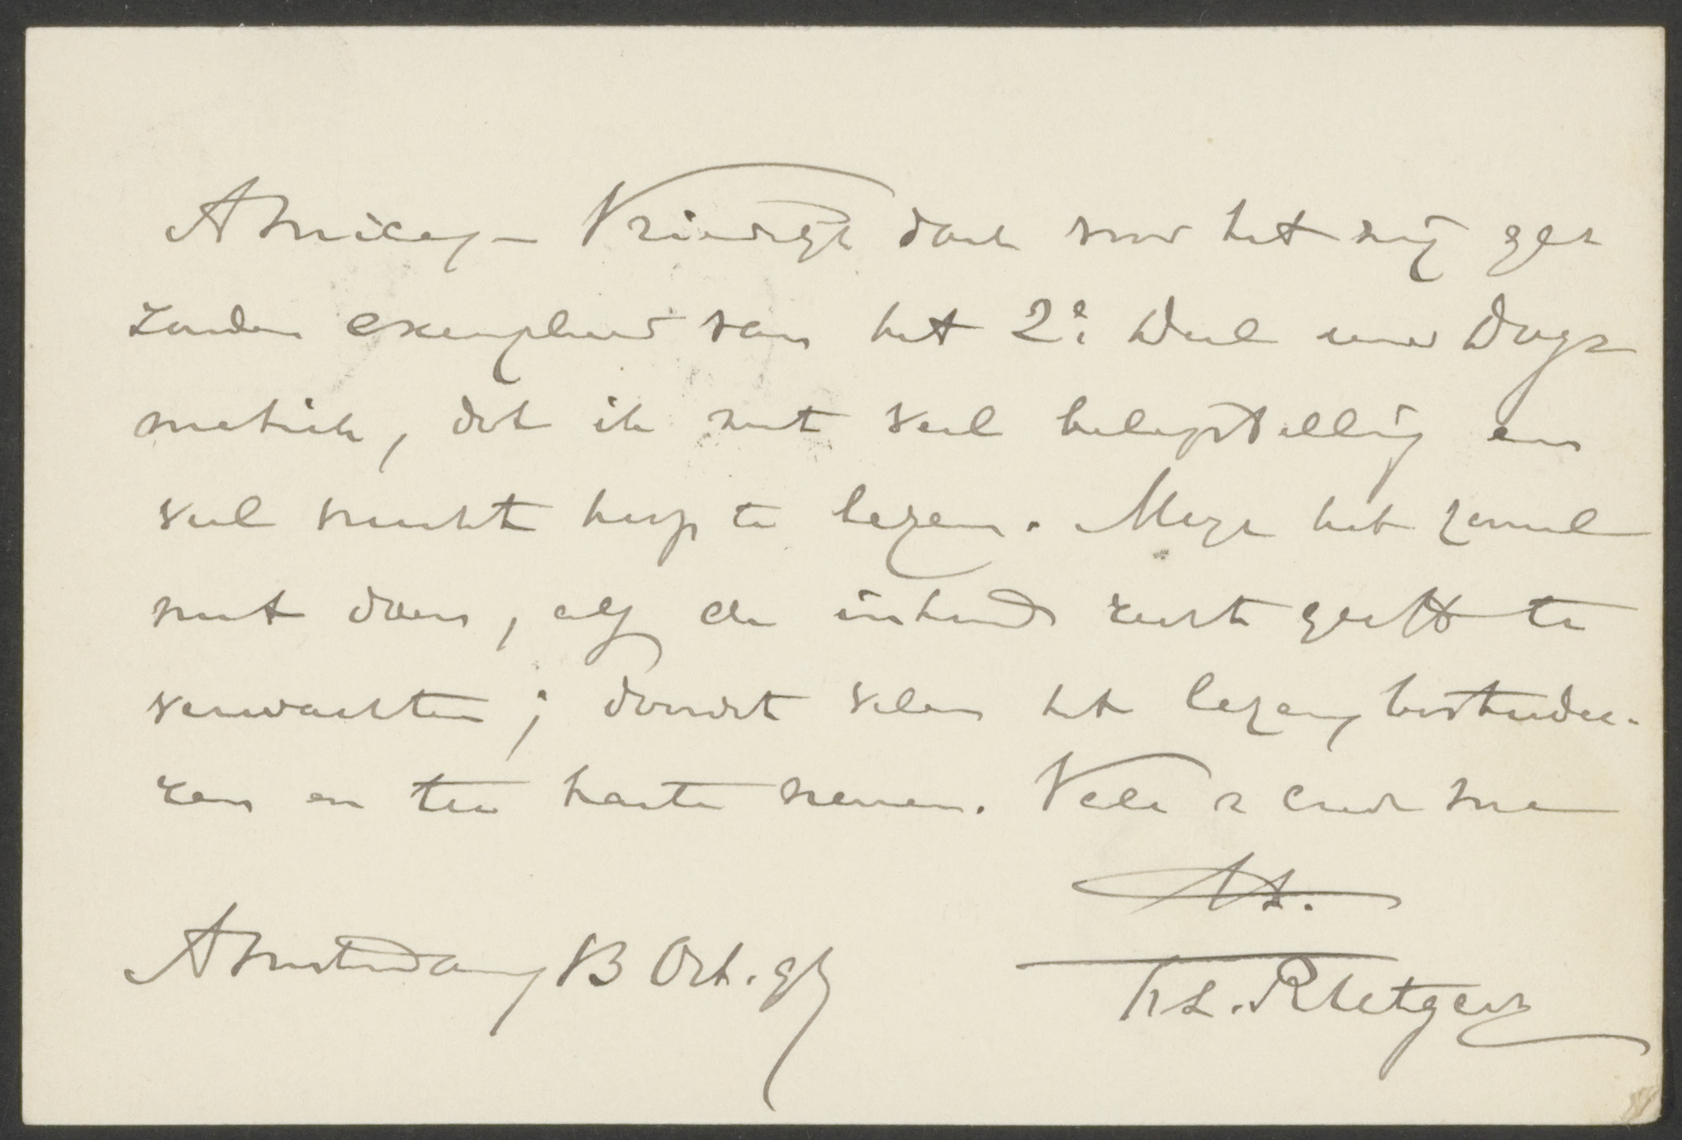 Amice, Vriendel. dank voor het mij ge=
zonden exemplaar van het 2e Deel uwer Dog=
matiek, dat ik met veel belangstelling en
veel vrucht hoop te lezen. Moge het zooveel
nut doen, als de inhoud recht geeft te
verwachten; doordat velen het lezen, bestudee-
ren en ter harte nemen. Vale & cura me
tt.
Amsterdam, 13 Oct. 97
F. L. Rutgers